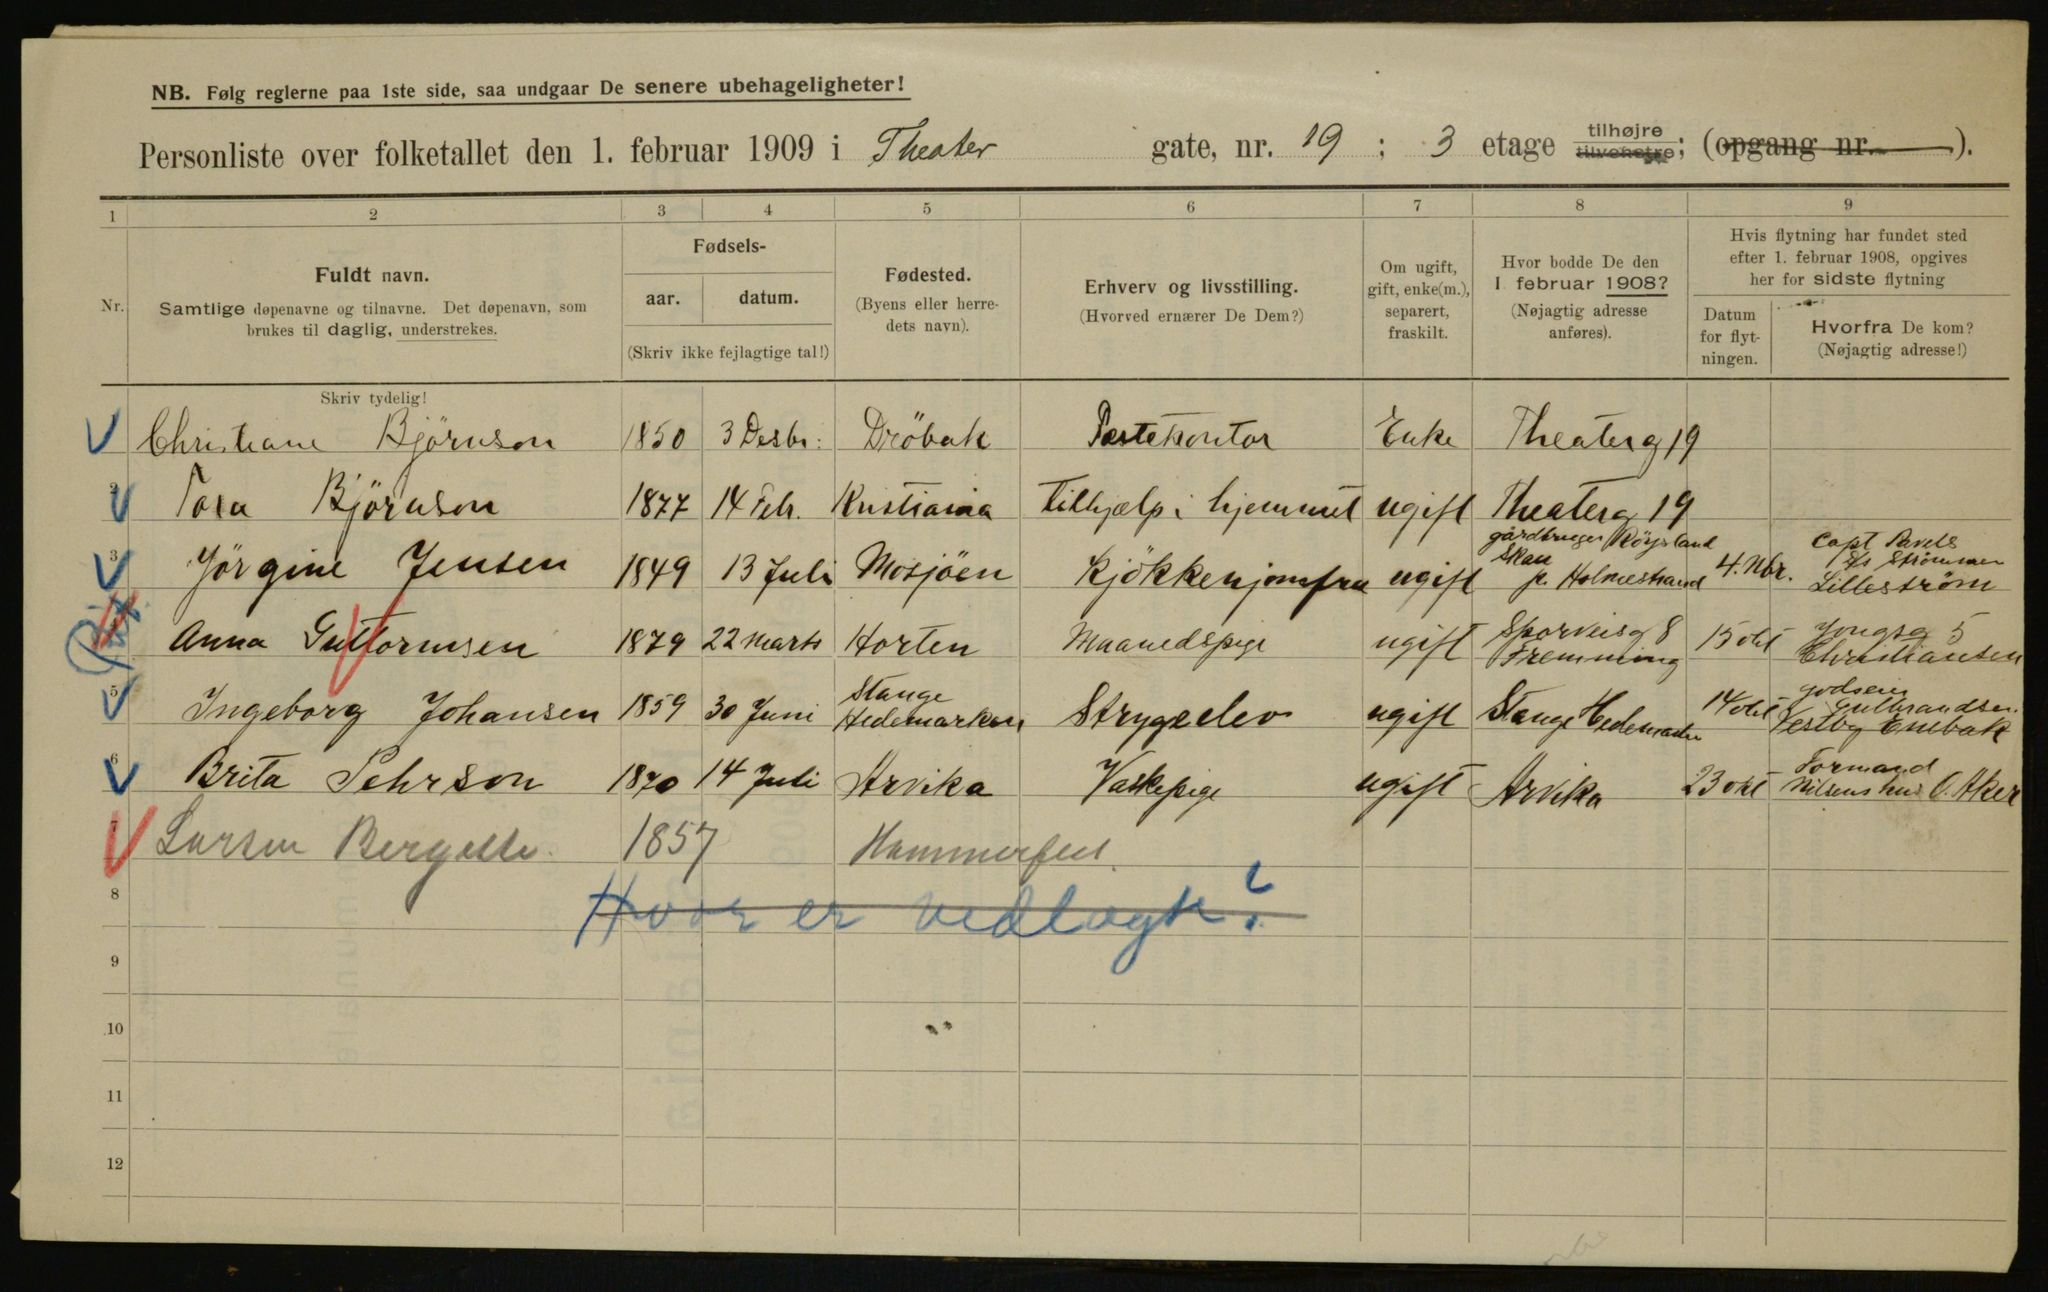 NB. Følg reglerne paa 1ste side, saa undgaar De senere ubehageligheter!
Personliste over folketallet den 1. februar 1909 i Theater gate, nr. 19 ; 3 etage tilhøjre tilvenstre; (opgang nr. ).
1 2 3 4 5 6 7 8 9
Nr.
Fuldt navn.
Samtlige døpenavne og tilnavne. Det døpenavn, som
brukes til daglig, understrekes.
Fødsels-
aar. datum.
(Skriv ikke fejlagtige tal!)
Fødested.
(Byens eller herre-
dets navn).
Erhverv og livsstilling.
(Hvorved ernærer De Dem?)
Om ugift,
gift, enke(m.),
separert,
fraskilt.
Hvor bodde De den
1. februar 1908?
(Nøjagtig adresse
anføres).
Hvis flytning har fundet sted
efter 1. februar 1908, opgives
her for sidste flytning
Datum
for flyt-
ningen.
Hvorfra De kom?
(Nøjagtig adresse!)
Skriv tydelig!
1 Christiane Björnson 1850 3 Desbr: Dröbak Festekontor Enke Theaterg 19
2 Tora Björnson 1877 14 Febr. Kristiania tilhjælp i hjemmet ugift Theaterg 19
3 Jörgine Jensen 1849 13 Juli Mosjöen Kjökkenjomfru ugift gårdbruger Röysland Skau p. Holmestrand 4. Nbr. Capt Strömmen Lilleström
4 Anna Guttormsen 1879 22 Marts Horten Maanedspige ugift Sporveisg 8 Fremming 15 okt Yongsg 5 Christiansen
5 Ingeborg Johansen 1859 30 Juni Stange Hedemarken Strygeelev ugift Stange Hedemarken 14 okt godseier Gulbrandsen Vestby Enebak
6 Brita Pehrson 1870 14 Juli Arvika Vaskepige ugift Arvika 23 okt Formand Nilsens hus Ö. Aker
7 Larsen Bergette. 1857 Hammerfest.
8 Hvor er vedlagt?
9
10
11
12